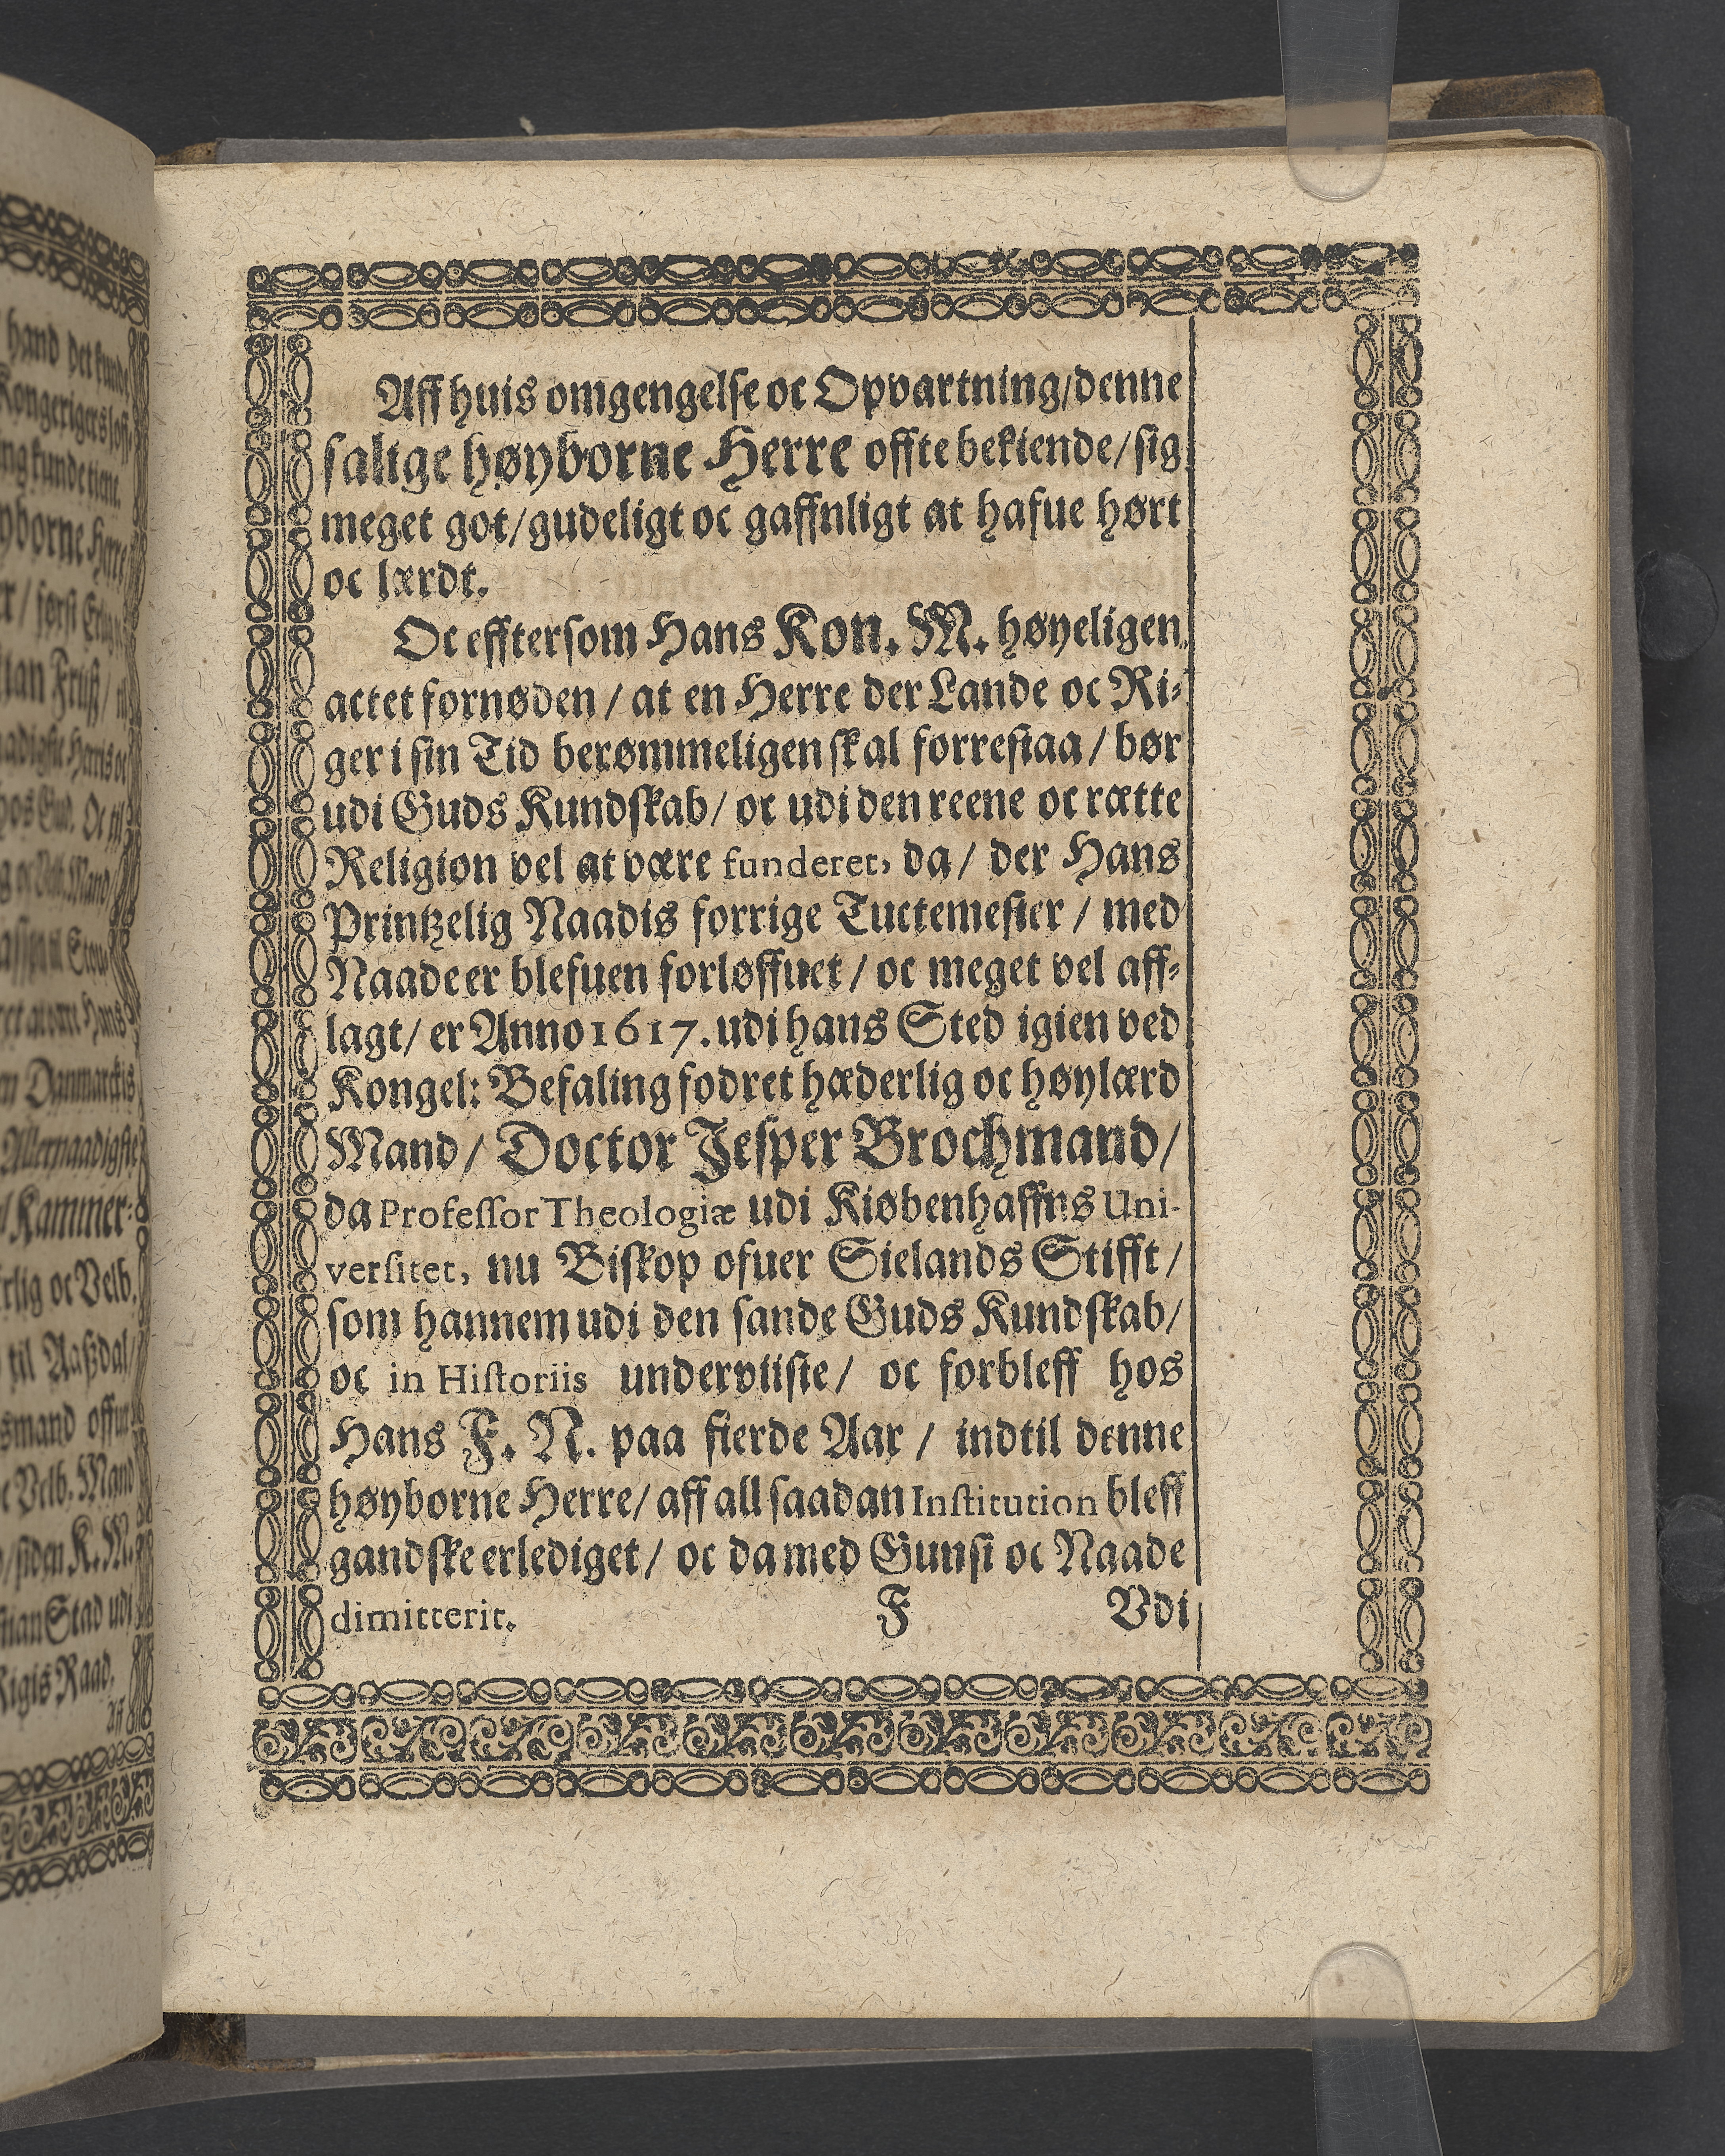 hand det kunde
Kongerigers
kunde tiene.
høyborne Herre
først
Danmarckis
Allernaadigste
Kammer-
oc Velb.
til Aaszdal/
Velb. Mand
siden K. M.
Stad udi
Rigis Raad.
Aff
Aff huis omgengelse oc Opvartning/denne
salige høyborne Herre offte bekiende/sig
meget got/gudeligt oc gaffnligt at hafue hørt
oc lærdt.
Oc efftersom Hans Kon. M. høyeligen
actet fornøden/ at en Herre der Lande oc Ri-
ger i sin Tid berømmeligen skal forrestaa/ bør
udi Guds Kundskab/ oc udi den reene oc rætte
Religion vel at være funderet, da/ der Hans
Printzelig Naadis forrige Tuctemester/ med
Naade er blefuen forløffuet/ oc meget vel aff-
lagt/ er Anno 1617. udi hans Sted igien ved
Kongel: Befaling fodret hæderlig oc høylærd
Mand/ Doctor Jesper Brochmand/
da Professor Theologiæ udi Kiøbenhaffns Uni-
versitet, nu Biskop ofuer Sielands Stifft/
som hannem udi den sande Guds Kundskab/
oc in Historiis underviiste/ oc forbleff hos
Hans F. N. paa fierde Aar/ indtil denne
høyborne Herre/ aff all saadan Institution bleff
gandske erlediget/ oc da med Gunst oc Naade
dimitterit.
F Vdi